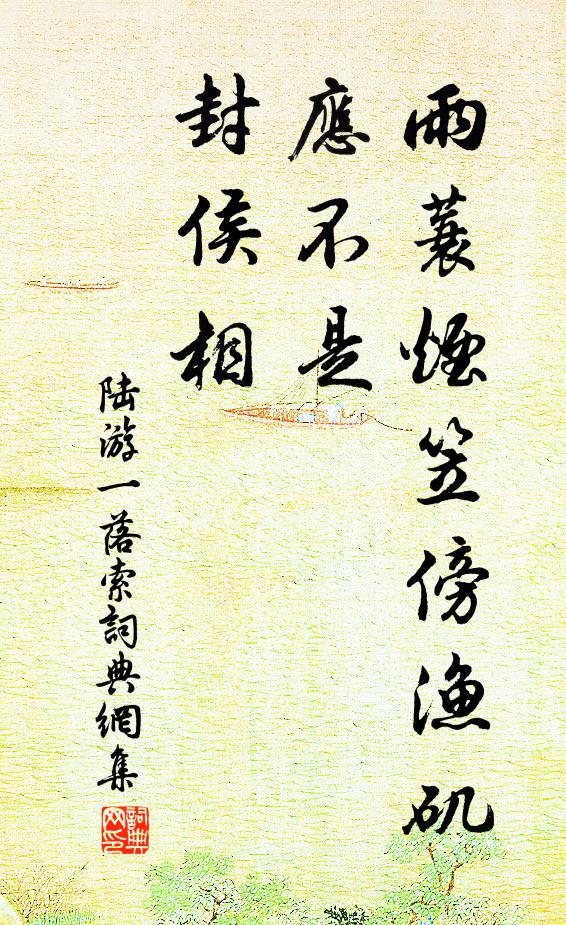 雨蓑煙笠傍漁磯
應不是
封侯相
陸游一落索詞典網集
詞典网印